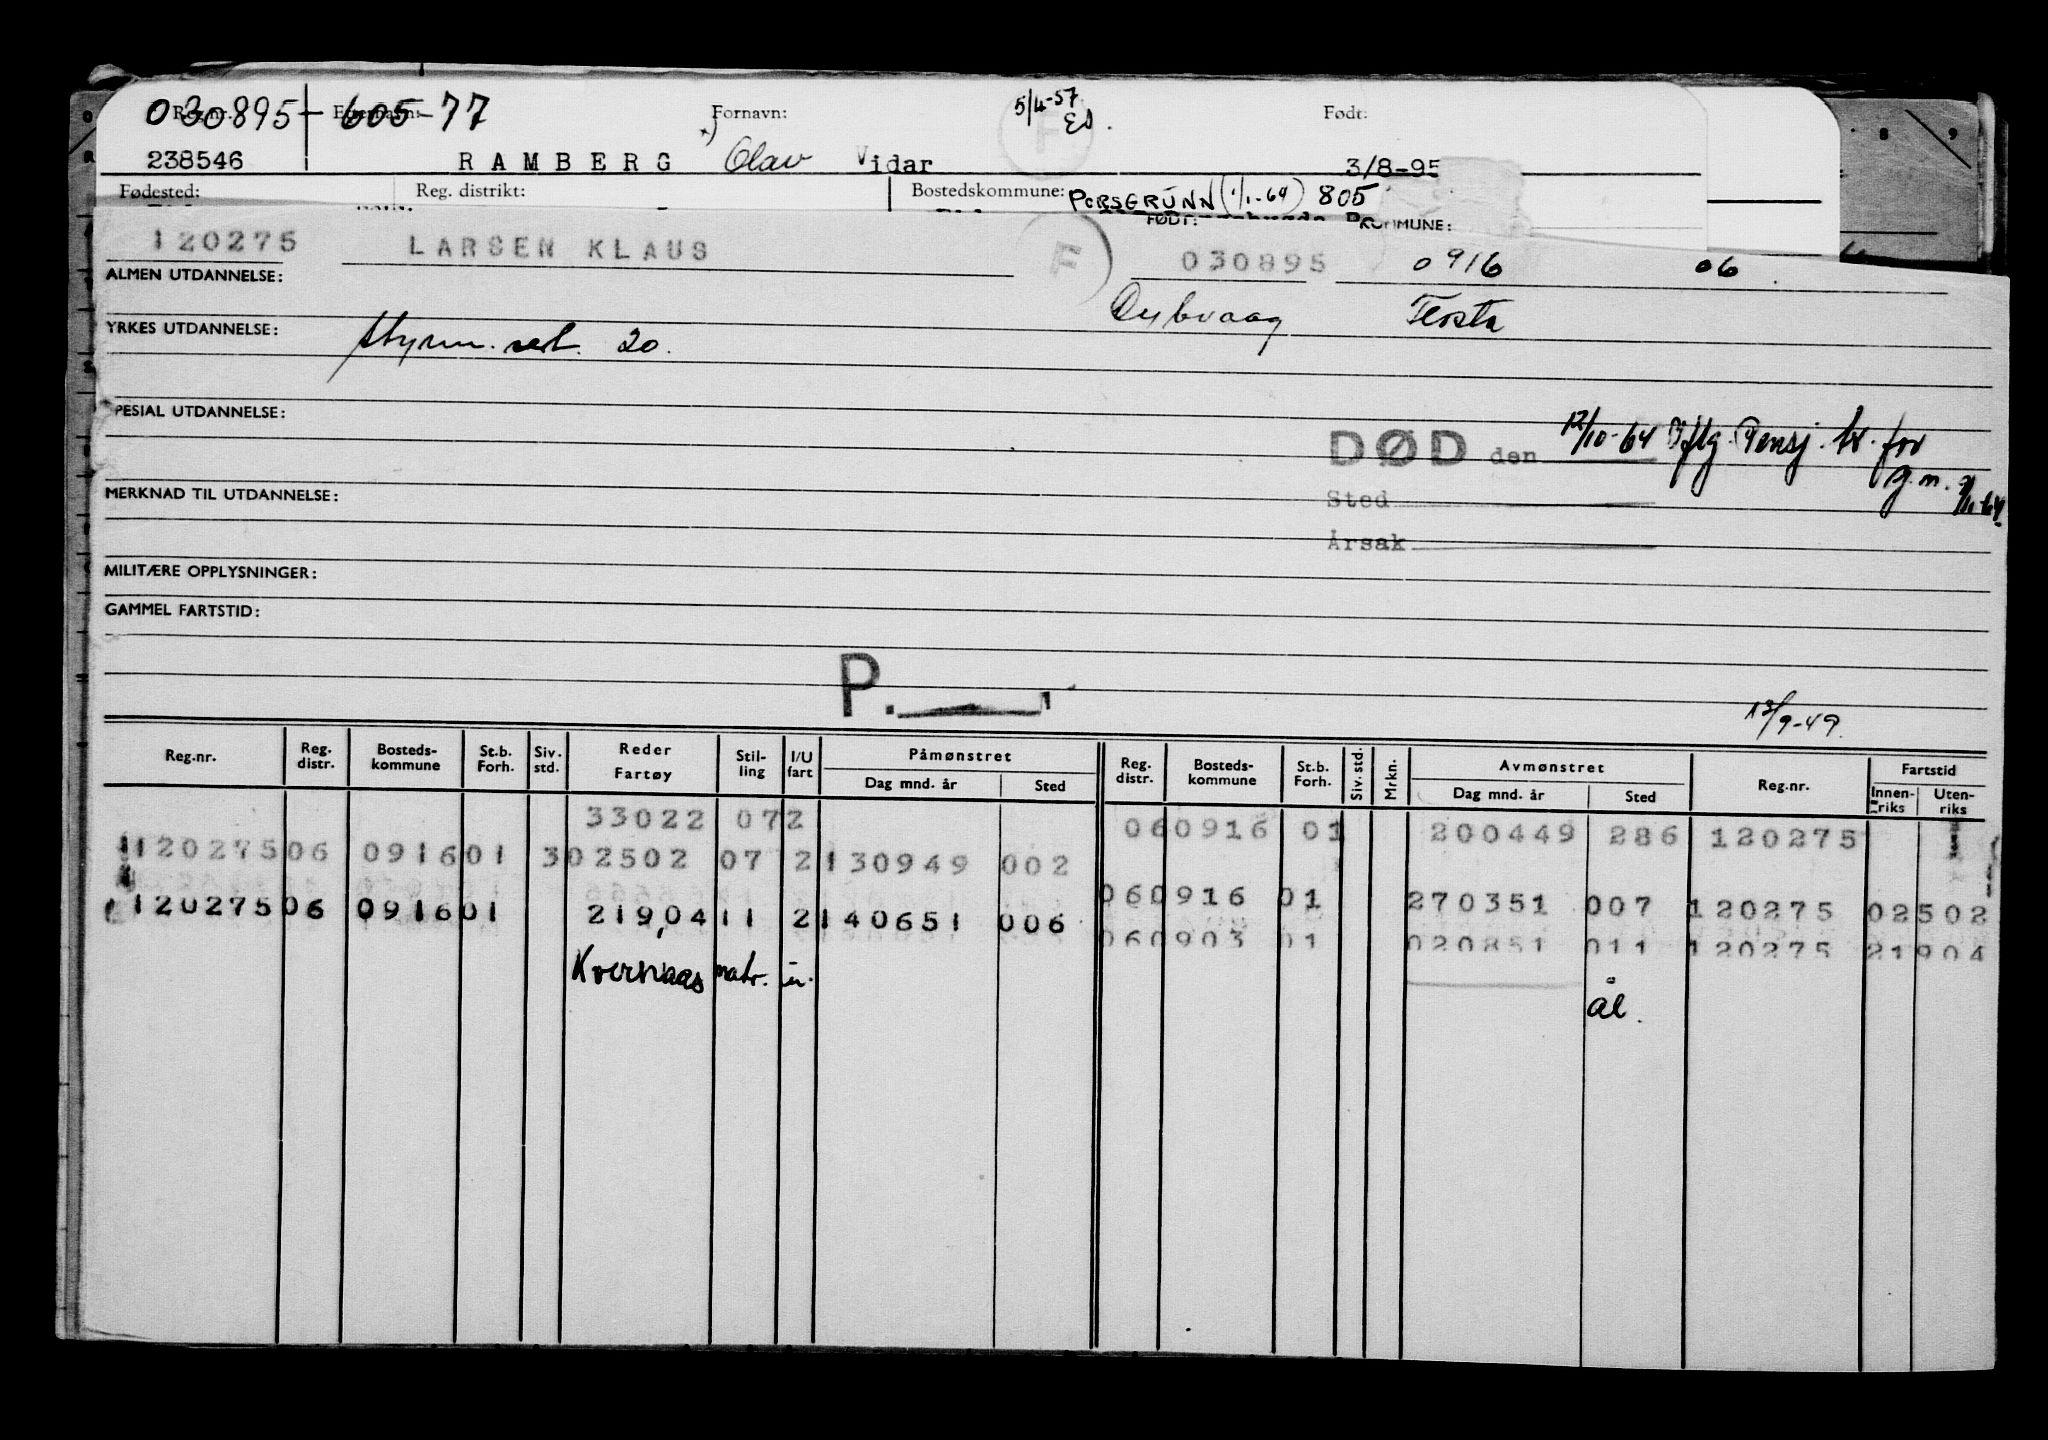 030895-605-77 Fornavn: 5/4-57 Født:
Es.
238546 RAMBERG x) Olav Vidar 3/8-95
Fødested: Reg. distrikt: Bostedskommune: PORSGRUNN (1/1-64) 805
FØDT: KOMMUNE:
120275 LARSEN KLAUS F 030895 0916 06
ALMEN UTDANNELSE:
Dybvaag
YRKES UTDANNELSE: 20.
PESIAL UTDANNELSE:
DØD den 12/10-64 Iflg. Pensj. tr. for
g.m.
MERKNAD TIL UTDANNELSE:
Sted
Årsak
MILITÆRE OPPLYSNINGER:
GAMMEL FARTSTID:
P.
13/9-49.
Reg.nr. Reg. distr. Bosteds-kommune St.b. Forh. Siv. std. Reder Fartøy Stil-ling I/U fart Påmønstret Reg. distr. Bosteds-kommune St.b. Forh. Siv. std. Mrkn. Avmønstret Reg.nr. Fartstid
Dag mnd. år Sted Dag mnd. år Sted Innen-riks Uten-riks
33022 072 060916 01 200449 286 120275
120275 06 0916 01 3 02502 07 2 130949 002
060916 01 270351 007 120275 02502
120275 06 0916 01 21904 11 2 140651 006
060903 01 020851 011 120275 21904
Kvernaas matr. u.
Ål.